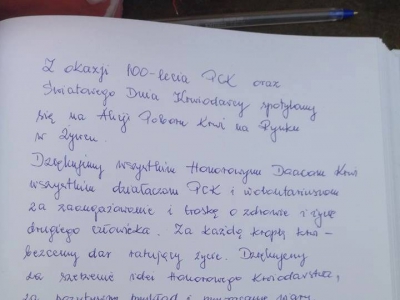 Z okazji 100-lecia PCK oraz
Światowego Dnia Krwiodawcy spotykamy
się na Akcji Poboru Krwi na Rynku
w Żywcu.
Dziękujemy wszystkim Honorowym Dawcom Krwi
wszystkim działaczom PCK i wolontariuszom
za zaangażowanie i troskę o zdrowie i życie
drugiego człowieka. Za każdą kroplę krwi –
bezcenny dar ratujący życie. Dziękujemy
za szerzenie idei Honorowego Krwiodawstwa,
za pozytywny przykład i